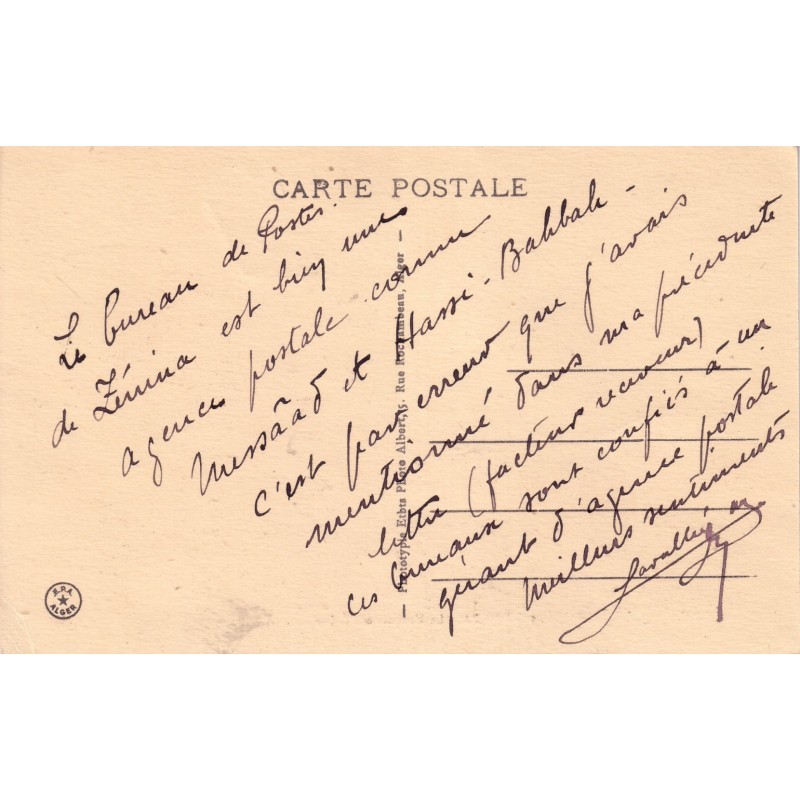 CARTE POSTALE
Le bureau de Postes
de Zénina est bien une
agence postale comme
Messâad et Hassi-Bahbah -
c'est par erreur que j'avais
mentionné dans ma précédente
lettre (facteur receveur)
ces bureaux sont confiés à un
gérant d'agence postale
Meilleurs sentiments
Phototypie Etbts Photo Albert, 15, Rue Rochambeau, Alger
E.P.A.
ALGER